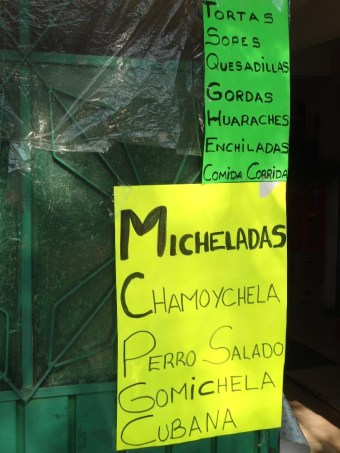 TORTAS
SOPES
QUESADILLAS
GORDAS
HUARACHES
ENCHILADAS
COMIDA CORRIDA
MICHELADAS
CHAMOYCHELA
PERRO SALADO
GOMiCHELA
CUBANA